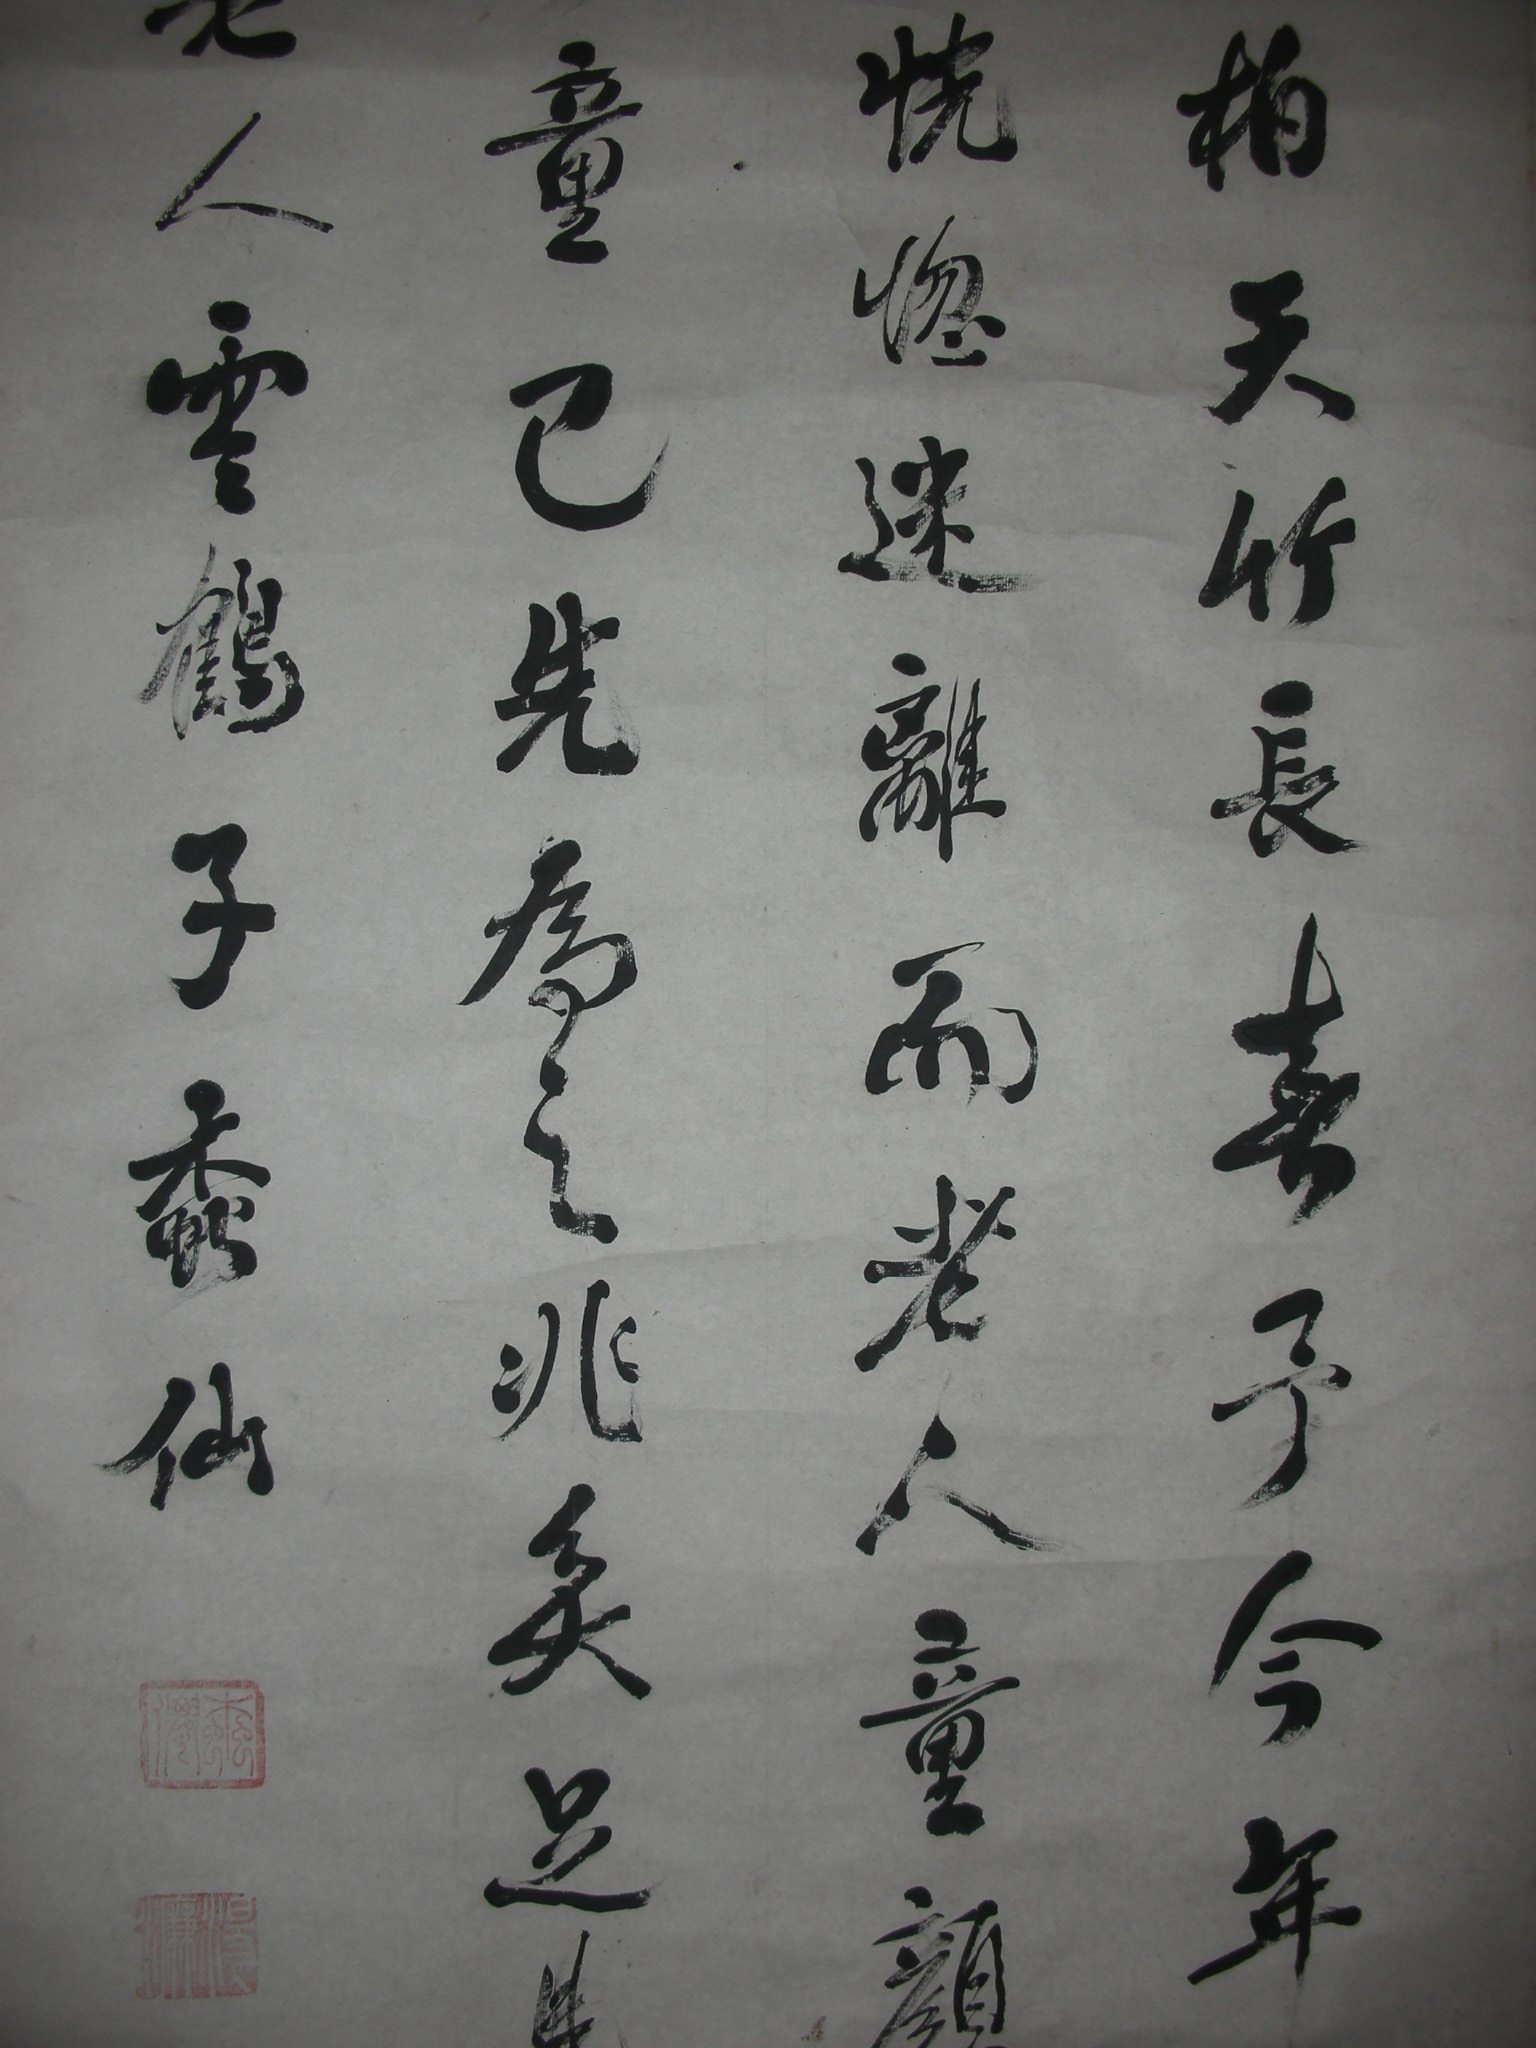 柏天竹長春予今年
恍惚迷離而老人童顏
童已先為之兆矣足
老人雲鶴子蠢仙